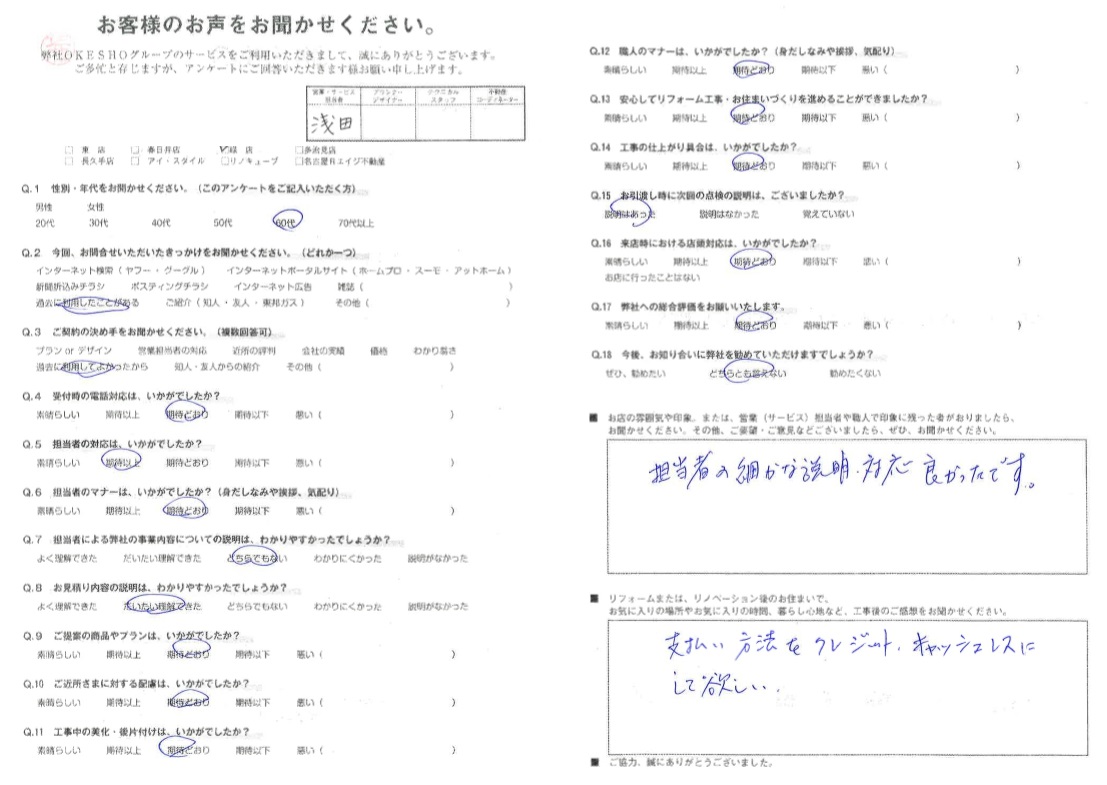 お客様のお声をお聞かせください。
弊社OKESHOグループのサービスをご利用いただきまして、誠にありがとうございます。
ご多忙と存じますが、アンケートにご回答いただきます様お願い申し上げます。
営業・サービス担当者 プランナーデザイナー テクニカルスタッフ 不動産コーディネーター
浅田
□ 東 店 □ 春日井店 ☑緑 店 □多治見店
□ 長久手店 □ アイ・スタイル □リノキューブ □名古屋Rエイジ不動産
Q.1 性別・年代をお聞かせください。(このアンケートをご記入いただく方)
男性 女性
20代 30代 40代 50代 60代 70代以上
Q.2 今回、お問合せいただいたきっかけをお聞かせください。(どれか一つ)
インターネット検索(ヤフー・グーグル) インターネットポータルサイト(ホームプロ・スーモ・アットホーム)
新聞折込みチラシ ポスティングチラシ インターネット広告 雑誌( )
過去に利用したことがある ご紹介(知人・友人・東邦ガス) その他( )
Q.3 ご契約の決め手をお聞かせください。(複数回答可)
プラン or デザイン 営業担当者の対応 近所の評判 会社の実績 価格 わかり易さ
過去に利用してよかったから 知人・友人からの紹介 その他( )
Q.4 受付時の電話対応は、いかがでしたか?
素晴らしい 期待以上 期待どおり 期待以下 悪い( )
Q.5 担当者の対応は、いかがでしたか?
素晴らしい 期待以上 期待どおり 期待以下 悪い( )
Q.6 担当者のマナーは、いかがでしたか?(身だしなみや挨拶、気配り)
素晴らしい 期待以上 期待どおり 期待以下 悪い( )
Q.7 担当者による弊社の事業内容についての説明は、わかりやすかったでしょうか?
よく理解できた だいたい理解できた どちらでもない わかりにくかった 説明がなかった
Q.8 お見積り内容の説明は、わかりやすかったでしょうか?
よく理解できた だいたい理解できた どちらでもない わかりにくかった 説明がなかった
Q.9 ご提案の商品やプランは、いかがでしたか?
素晴らしい 期待以上 期待どおり 期待以下 悪い( )
Q.10 ご近所さまに対する配慮は、いかがでしたか?
素晴らしい 期待以上 期待どおり 期待以下 悪い( )
Q.11 工事中の美化・後片付けは、いかがでしたか?
素晴らしい 期待以上 期待どおり 期待以下 悪い( )
Q.12 職人のマナーは、いかがでしたか?(身だしなみや挨拶、気配り)
素晴らしい 期待以上 期待どおり 期待以下 悪い( )
Q.13 安心してリフォーム工事・お住まいづくりを進めることができましたか?
素晴らしい 期待以上 期待どおり 期待以下 悪い( )
Q.14 工事の仕上がり具合は、いかがでしたか?
素晴らしい 期待以上 期待どおり 期待以下 悪い( )
Q.15 お引渡し時に次回の点検の説明は、ございましたか?
説明はあった 説明はなかった 覚えていない
Q.16 来店時における店頭対応は、いかがでしたか?
素晴らしい 期待以上 期待どおり 期待以下 悪い( )
お店に行ったことはない
Q.17 弊社への総合評価をお願いいたします。
素晴らしい 期待以上 期待どおり 期待以下 悪い( )
Q.18 今後、お知り合いに弊社を勧めていただけますでしょうか?
ぜひ、勧めたい どちらとも言えない 勧めたくない
■ お店の雰囲気や印象。または、営業(サービス)担当者や職人で印象に残った者がおりましたら、
お聞かせください。その他、ご要望・ご意見などございましたら、ぜひ、お聞かせください。
担当者の細かな説明・対応 良かったです。
■ リフォームまたは、リノベーション後のお住まいで、
お気に入りの場所やお気に入りの時間、暮らし心地など、工事後のご感想をお聞かせください。
支払い方法をクレジット、キャッシュレスに
して欲しい。
■ ご協力、誠にありがとうございました。